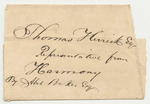 Thomas Herrick Esq
Representative from
Harmony
By